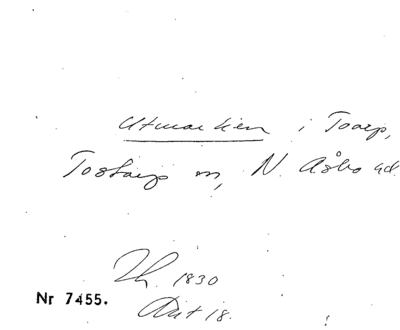 Utmarken i Toarp,
Tostarp m, N. Åsbo hd.
Th. 1830
Akt 18.
Nr 7455.